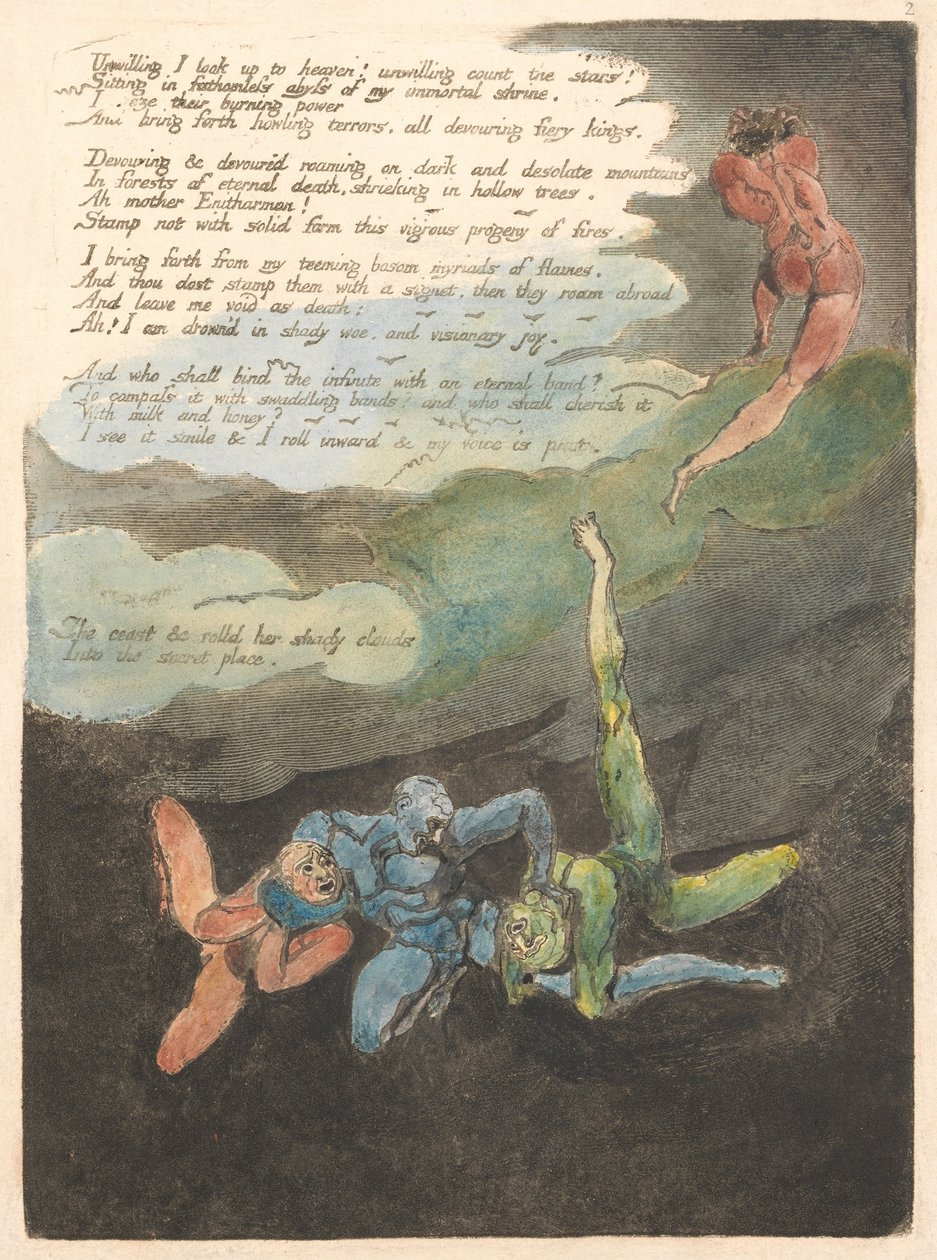 2
Unwilling I look up to heaven! unwilling count the stars!
Sitting in fathomless abyss of my immortal shrine.
I seze their burning power
And bring forth howling terrors, all devouring fiery kings.
Devouring & devoured roaming on dark and desolate mountains
In forests of eternal death, shrieking in hollow trees.
Ah mother Enitharmon!
Stamp not with solid form this vigrous progeny of fires.
I bring forth from my teeming bosom myriads of flames.
And thou dost stamp them with a signet, then they roam abroad
And leave me void as death:
Ah! I am drown'd in shady woe, and visionary joy.
And who shall bind the infinite with an eternal band?
To compass it with swaddling bands? and who shall cherish it
With milk and honey?
I see it smile & I roll inward & my voice is past.
She ceast & rolld her shady clouds
Into the secret place.